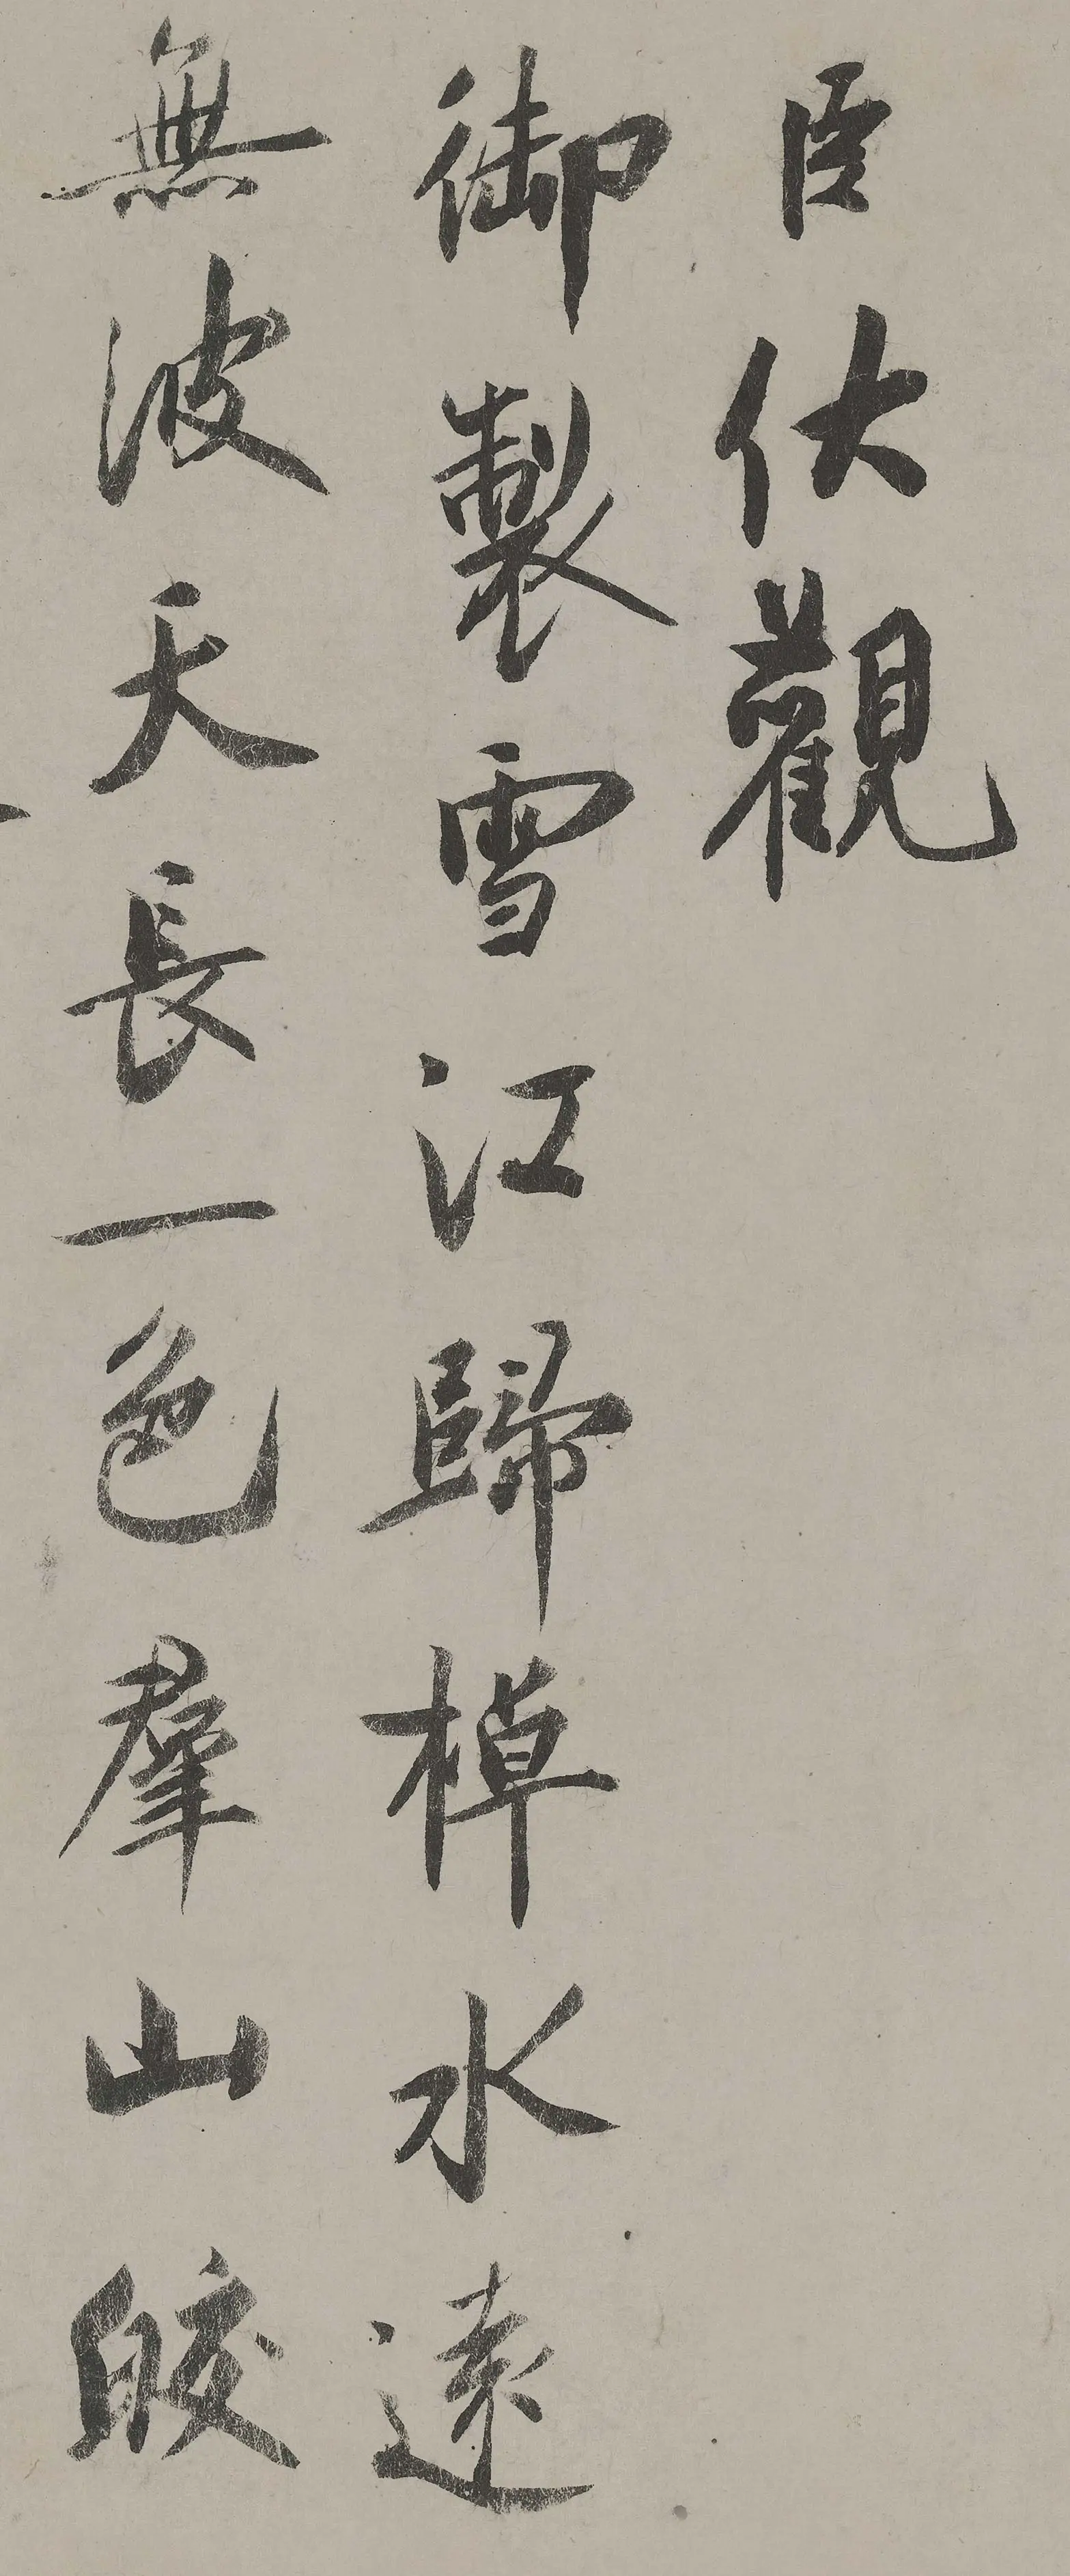 臣伏觀
御製雪江歸棹水遠
無波天長一色群山皎